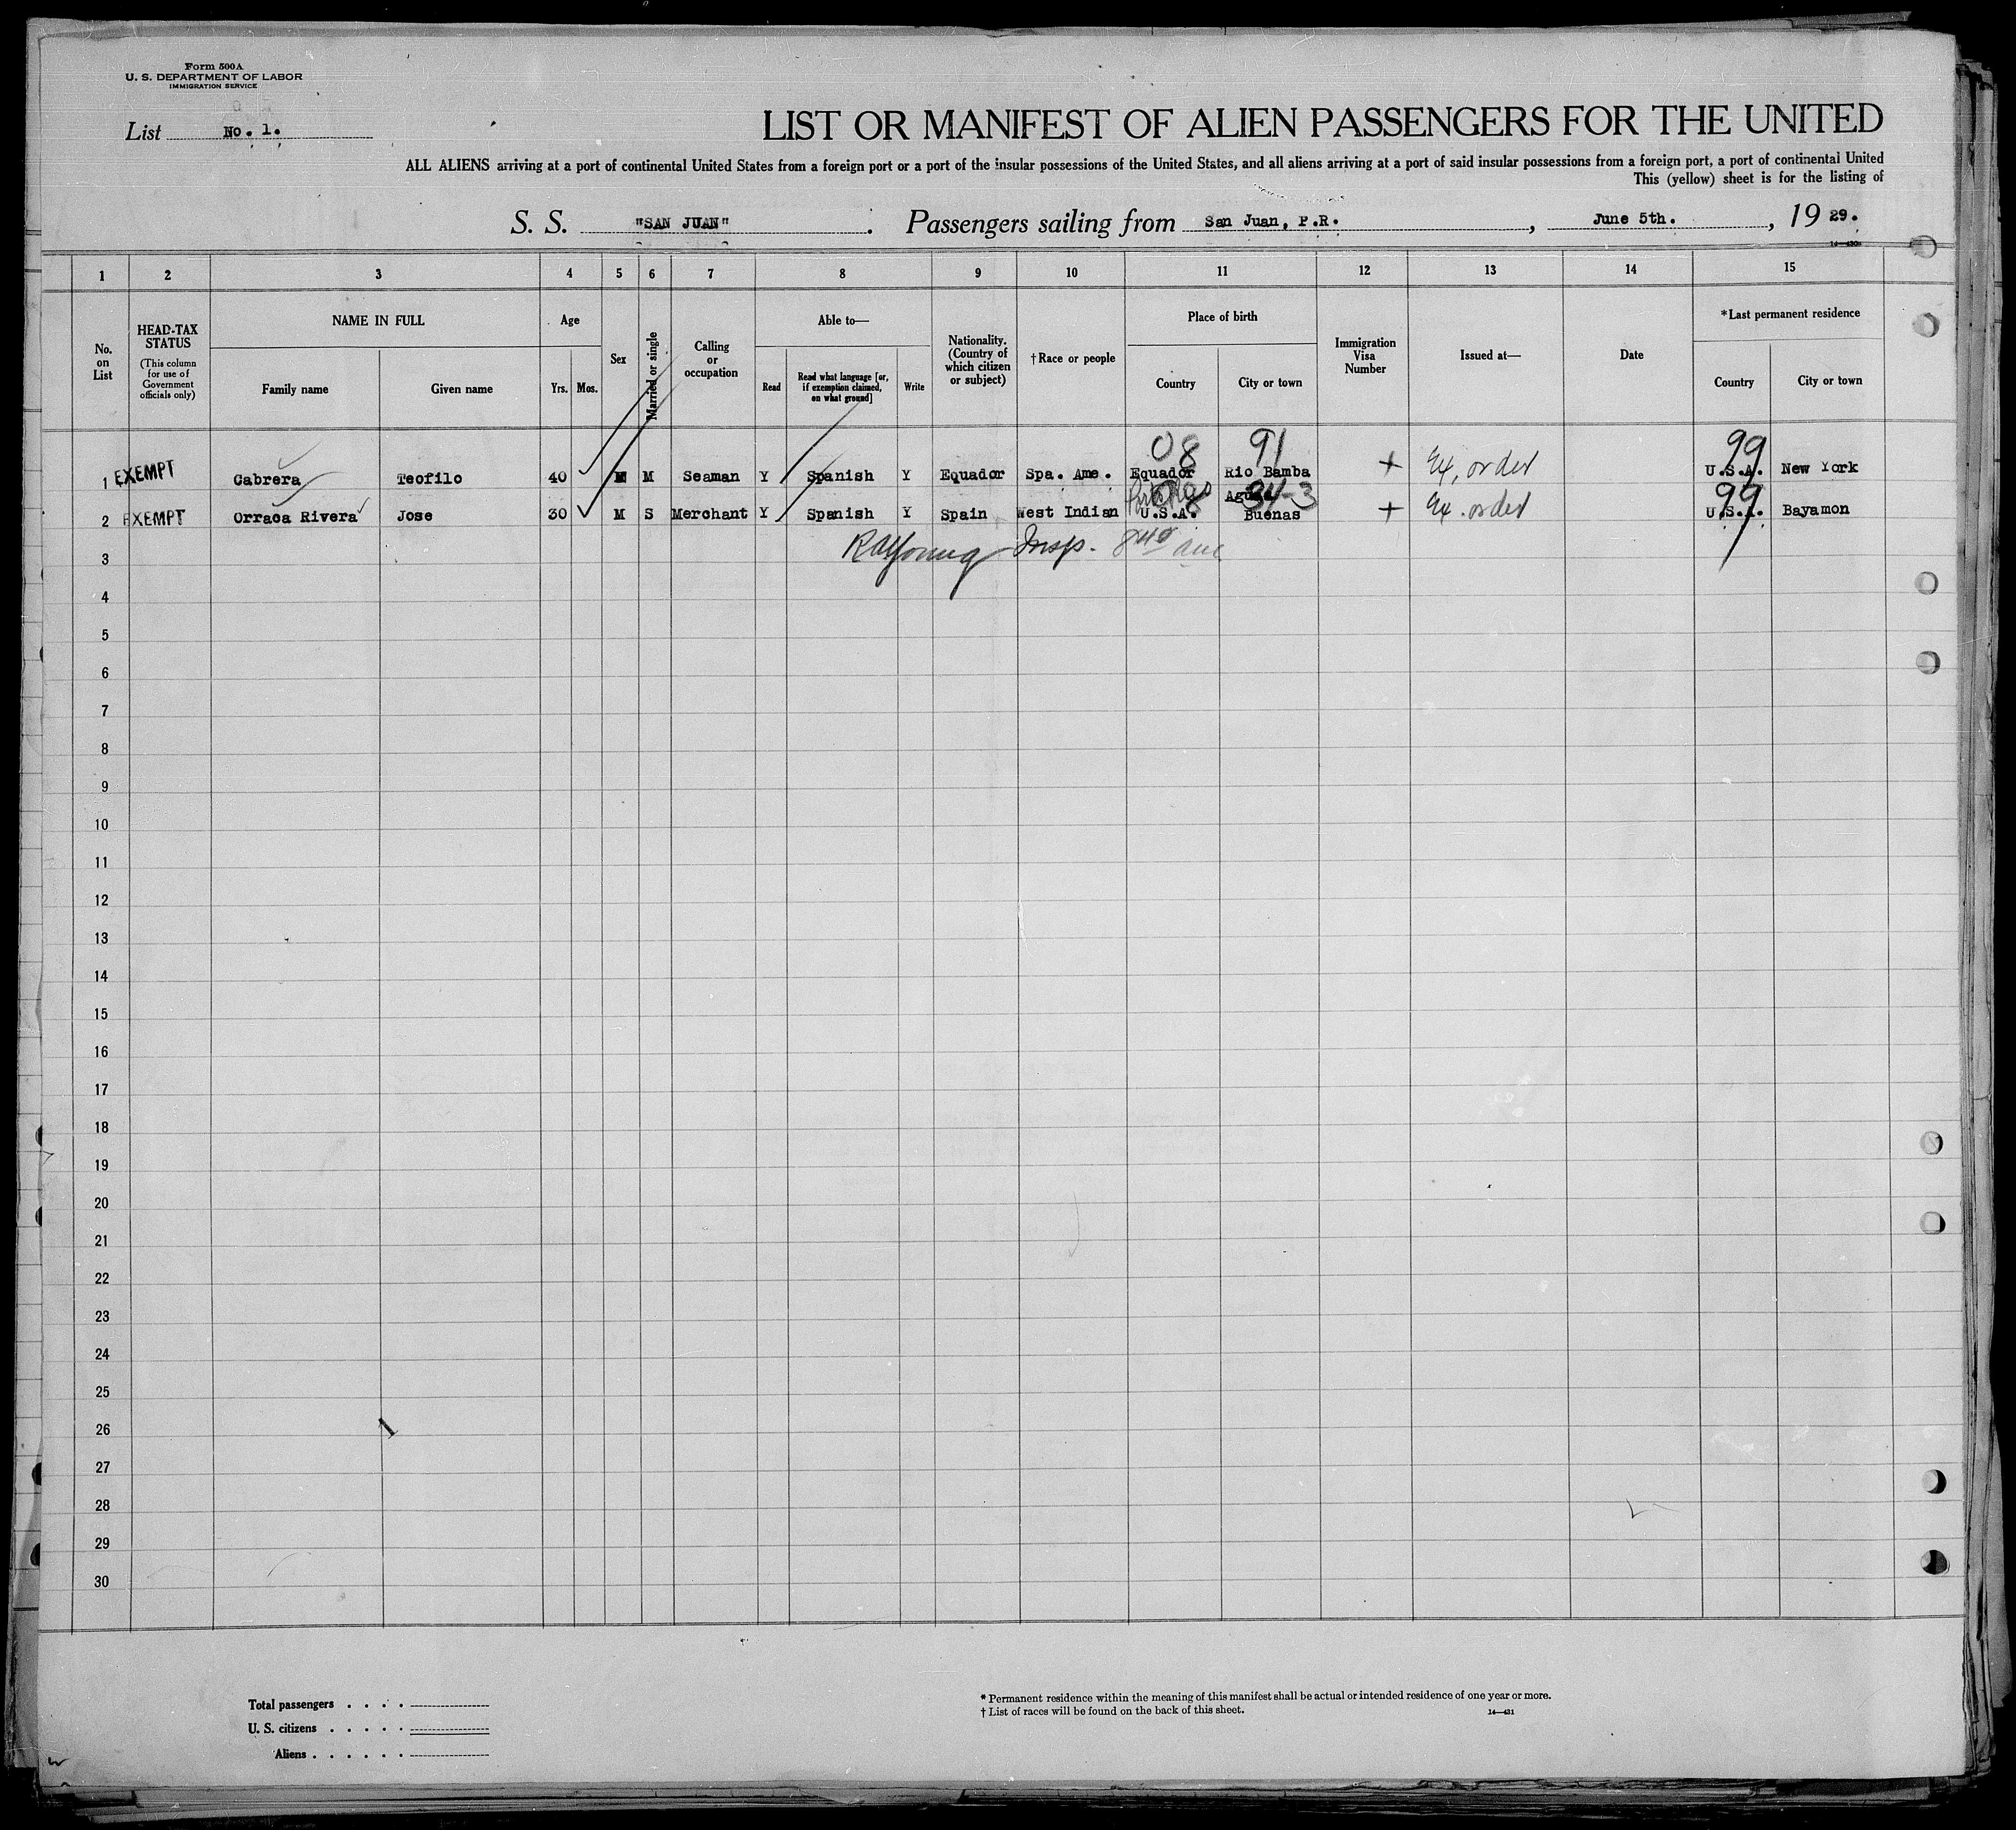 Form 500A
U. S. DEPARTMENT OF LABOR
IMMIGRATION SERVICE
List No. 1.
LIST OR MANIFEST OF ALIEN PASSENGERS FOR THE UNITED
ALL ALIENS arriving at a port of continental United States from a foreign port or a port of the insular possessions of the United States, and all aliens arriving at a port of said insular possessions from a foreign port, a port of continental United
This (yellow) sheet is for the listing of
S. S. "SAN JUAN" . Passengers sailing from San Juan, P.R. , June 5th. , 19 29.
14—430
1 2 3 4 5 6 7 8 9 10 11 12 13 14 15
No. on List
HEAD-TAX STATUS
(This column for use of Government officials only)
NAME IN FULL
Family name
Given name
Age
Yrs. Mos.
Sex
Married or single
Calling or occupation
Able to—
Read
Read what language [or, if exemption claimed, on what ground]
Write
Nationality. (Country of which citizen or subject)
†Race or people
Place of birth
Country
City or town
Immigration Visa Number
Issued at—
Date
*Last permanent residence
Country
City or town
08 91 99
1 EXEMPT Cabrera Teofilo 40 M M Seaman Y Spanish Y Equador Spa. Ame. Equador Rio Bamba + Ex. order U.S.A. New York
Aguas 34-3 99
2 EXEMPT Orraca Rivera Jose 30 M S Merchant Y Spanish Y Spain West Indian U.S.A. Buenas + Ex. order U.S.A. Bayamon
3 RAYoung Insp.
4
5
6
7
8
9
10
11
12
13
14
15
16
17
18
19
20
21
22
23
24
25
26
27
28
29
30
Total passengers . . . .
U. S. citizens . . . . .
Aliens . . . . . .
* Permanent residence within the meaning of this manifest shall be actual or intended residence of one year or more.
† List of races will be found on the back of this sheet.
14—431